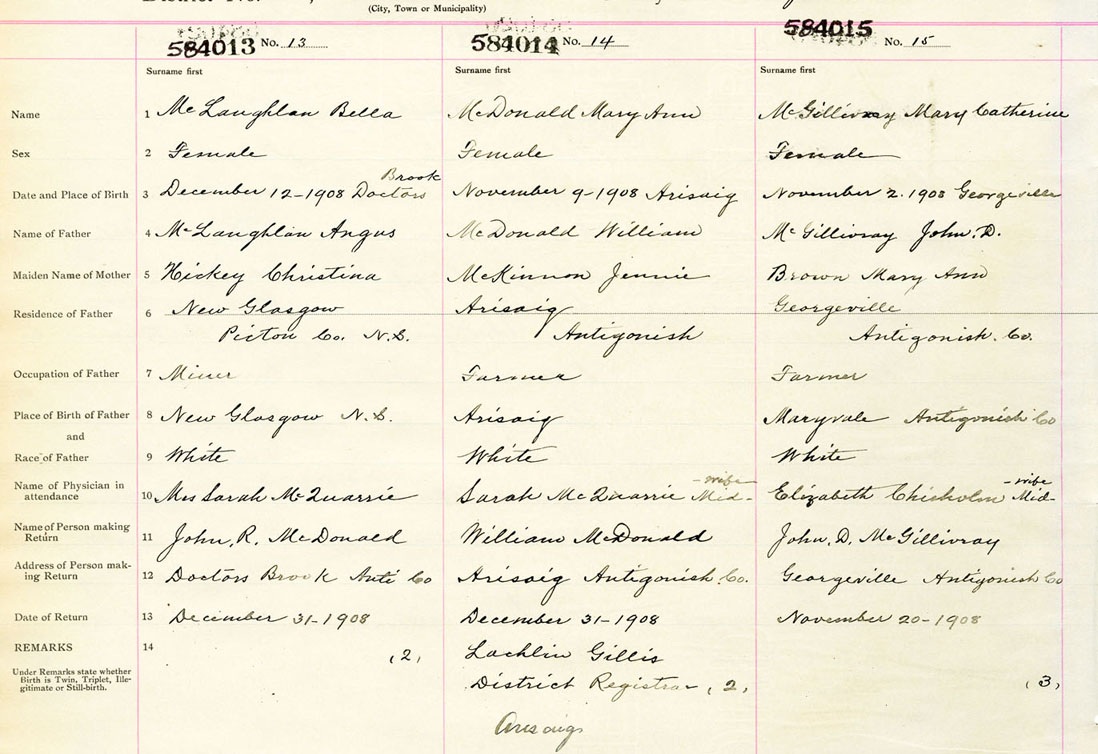 (City, Town or Municipality)
584013 No. 13
584014 No. 14
584015 No. 15
Surname first
Surname first
Surname first
Name 1 McLaughlan Bella
McDonald Mary Ann
McGillivray Mary Catherine
Sex 2 Female
Female
Female
Brook
Date and Place of Birth 3 December 12-1908 Doctors
November 9-1908 Arisaig
November 2. 1908 Georgeville
Name of Father 4 McLaughlan Angus
McDonald William
McGillivray John. D.
Maiden Name of Mother 5 Hickey Christina
McKinnon Jennie
Brown Mary Ann
Residence of Father 6 New Glasgow
Pictou Co. N.S.
Arisaig
Antigonish
Georgeville
Antigonish. Co.
Occupation of Father 7 Miner
Farmer
Farmer
Place of Birth of Father 8 New Glasgow N.S.
Arisaig
Maryvale Antigonish Co
and
Race of Father 9 White
White
White
Name of Physician in
attendance 10 Mrs Sarah McQuarrie
-wife
Sarah McQuarrie Mid-
-wife
Elizabeth Chisholm Mid-
Name of Person making
Return 11 John. R. McDonald
William McDonald
John. D. McGillivray
Address of Person mak-
ing Return 12 Doctors Brook Anti Co
Arisaig Antigonish. Co.
Georgeville Antigonish Co
Date of Return 13 December 31-1908
December 31-1908
November 20-1908
REMARKS 14
Under Remarks state whether
Birth is Twin, Triplet, Ille-
gitimate or Still-birth.
(2)
Lachlin Gillis
District Registrar (2)
Arisaig
(3)